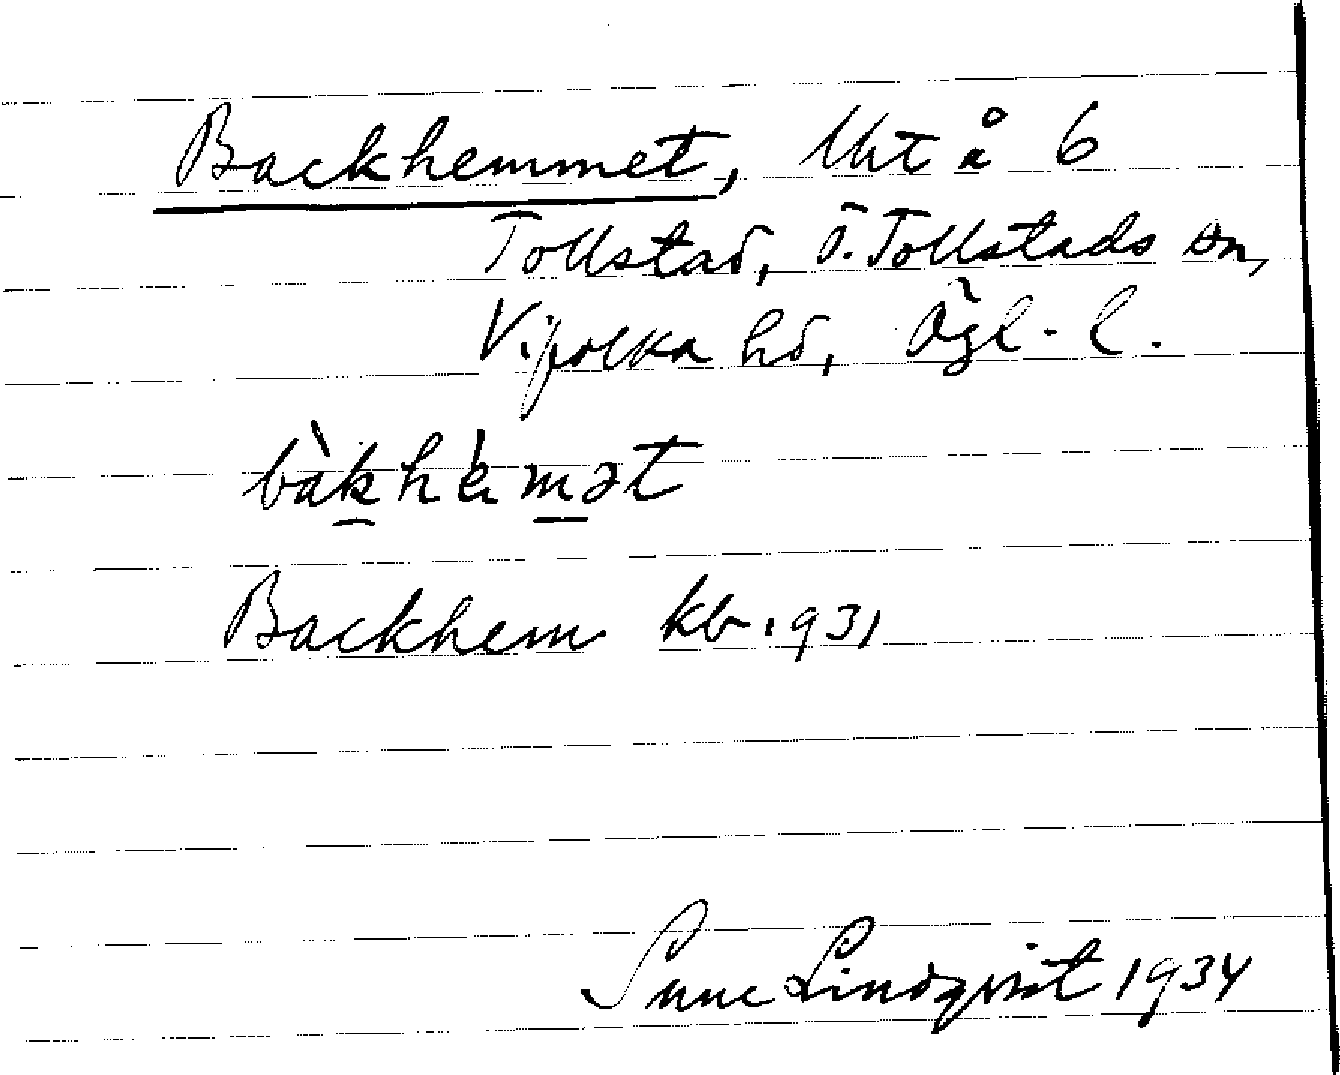 Backhemmet, Uht å 6
Tollstad, Ö. Tollstads sn,
Vifolka hd, Ögl. l.
bàkhèmət
Backhem kb. 1931
Sune Lindqvist 1934